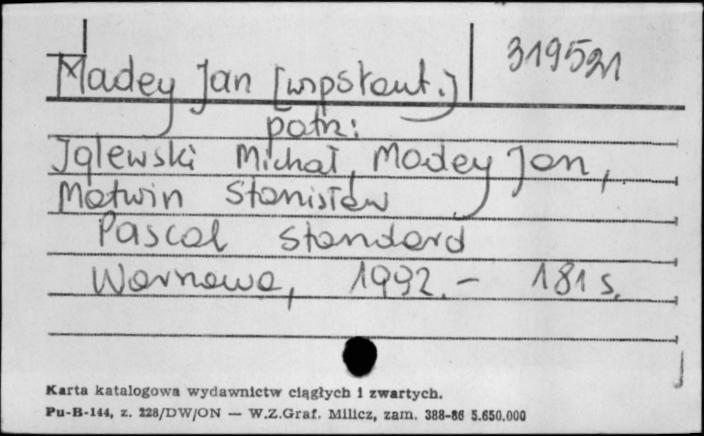 Madey Jan [wspłaut.] 319521
patrz:
Iglewski Michał, Madey Jan,
Matwin Stanisław
Pascal standard
Warszawa, 1992. - 181 s.
Karta katalogowa wydawnictw ciągłych i zwartych.
Pu-B-144, z. 228/DW/ON — W.Z.Graf. Milicz, zam. 388-86 5.650.000